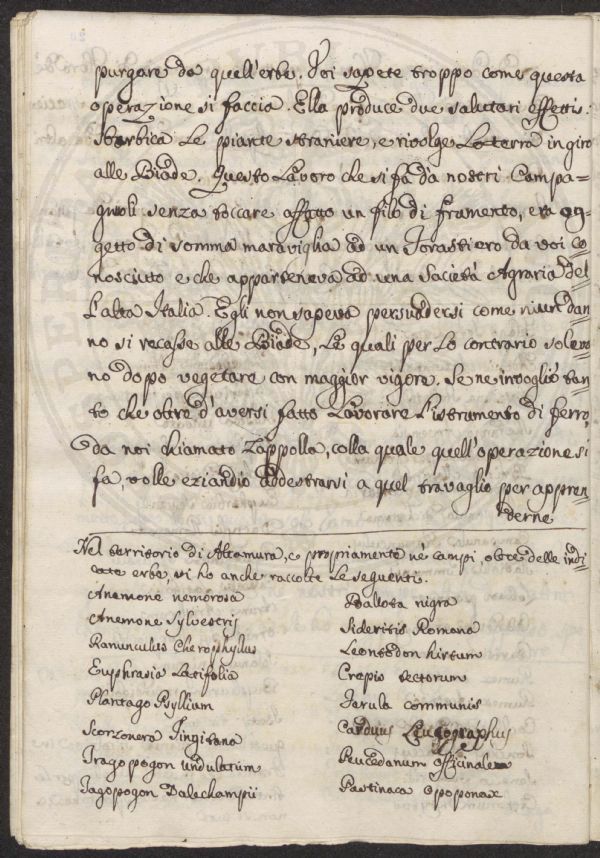 purgare da quell'erbe. Voi sapete troppo come questa
operazione si faccia. Ella produce due salutari effetti:
sbarbica le piante straniere, e rivolge la terra in giro
alle Biade. Questo lavoro che si fa da nostri Campa=
gnuoli senza toccare affatto un filo di frumento, era og=
getto di somma maraviglia ad un Forastiero da voi co=
nosciuto e che apparteneva ad una Società Agraria del
l'alta Italia. Egli non sapeva persuadersi come niun dan=
no si recasse alle Biade, le quali per lo contrario soleva=
no dopo vegetare con maggior vigore. Se ne invogliò tan=
to che oltre d'aversi fatto lavorare l'istrumento di ferro,
da noi chiamato Zappolla, colla quale quell'operazione si
fa, volle eziandio addestrarsi a quel travaglio per appren=
derne
Nel territorio di Altamura, e propriamente ne' campi, oltre delle indi=
cate erbe, vi ho anche raccolte le seguenti.
Anemone nemorosa
Anemone Sylvestris
Ranunculus Cherophylus
Euphrasia Latifolia
Plantago Psyllium
Scorzonera Tingitana
Tragopogon undulatum
Tragopogon Dalechampii
Ballota nigra
Sideritis Romana
Leontodon hirtum
Crepis tectorum
Ferula communis
Carduus Leucographus
Peucedanum officinale
Pastinaca opoponax